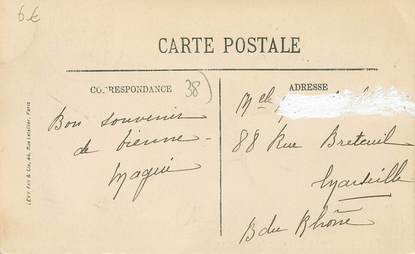 6€
CARTE POSTALE
CORRESPONDANCE
38
ADRESSE
Bon souvenir
de Vienne -
Maguie
Melle
88 Rue Breteuil
Marseille
B du Rhône
LÉVY Fils & Cie, 44, Rue Letellier, Paris